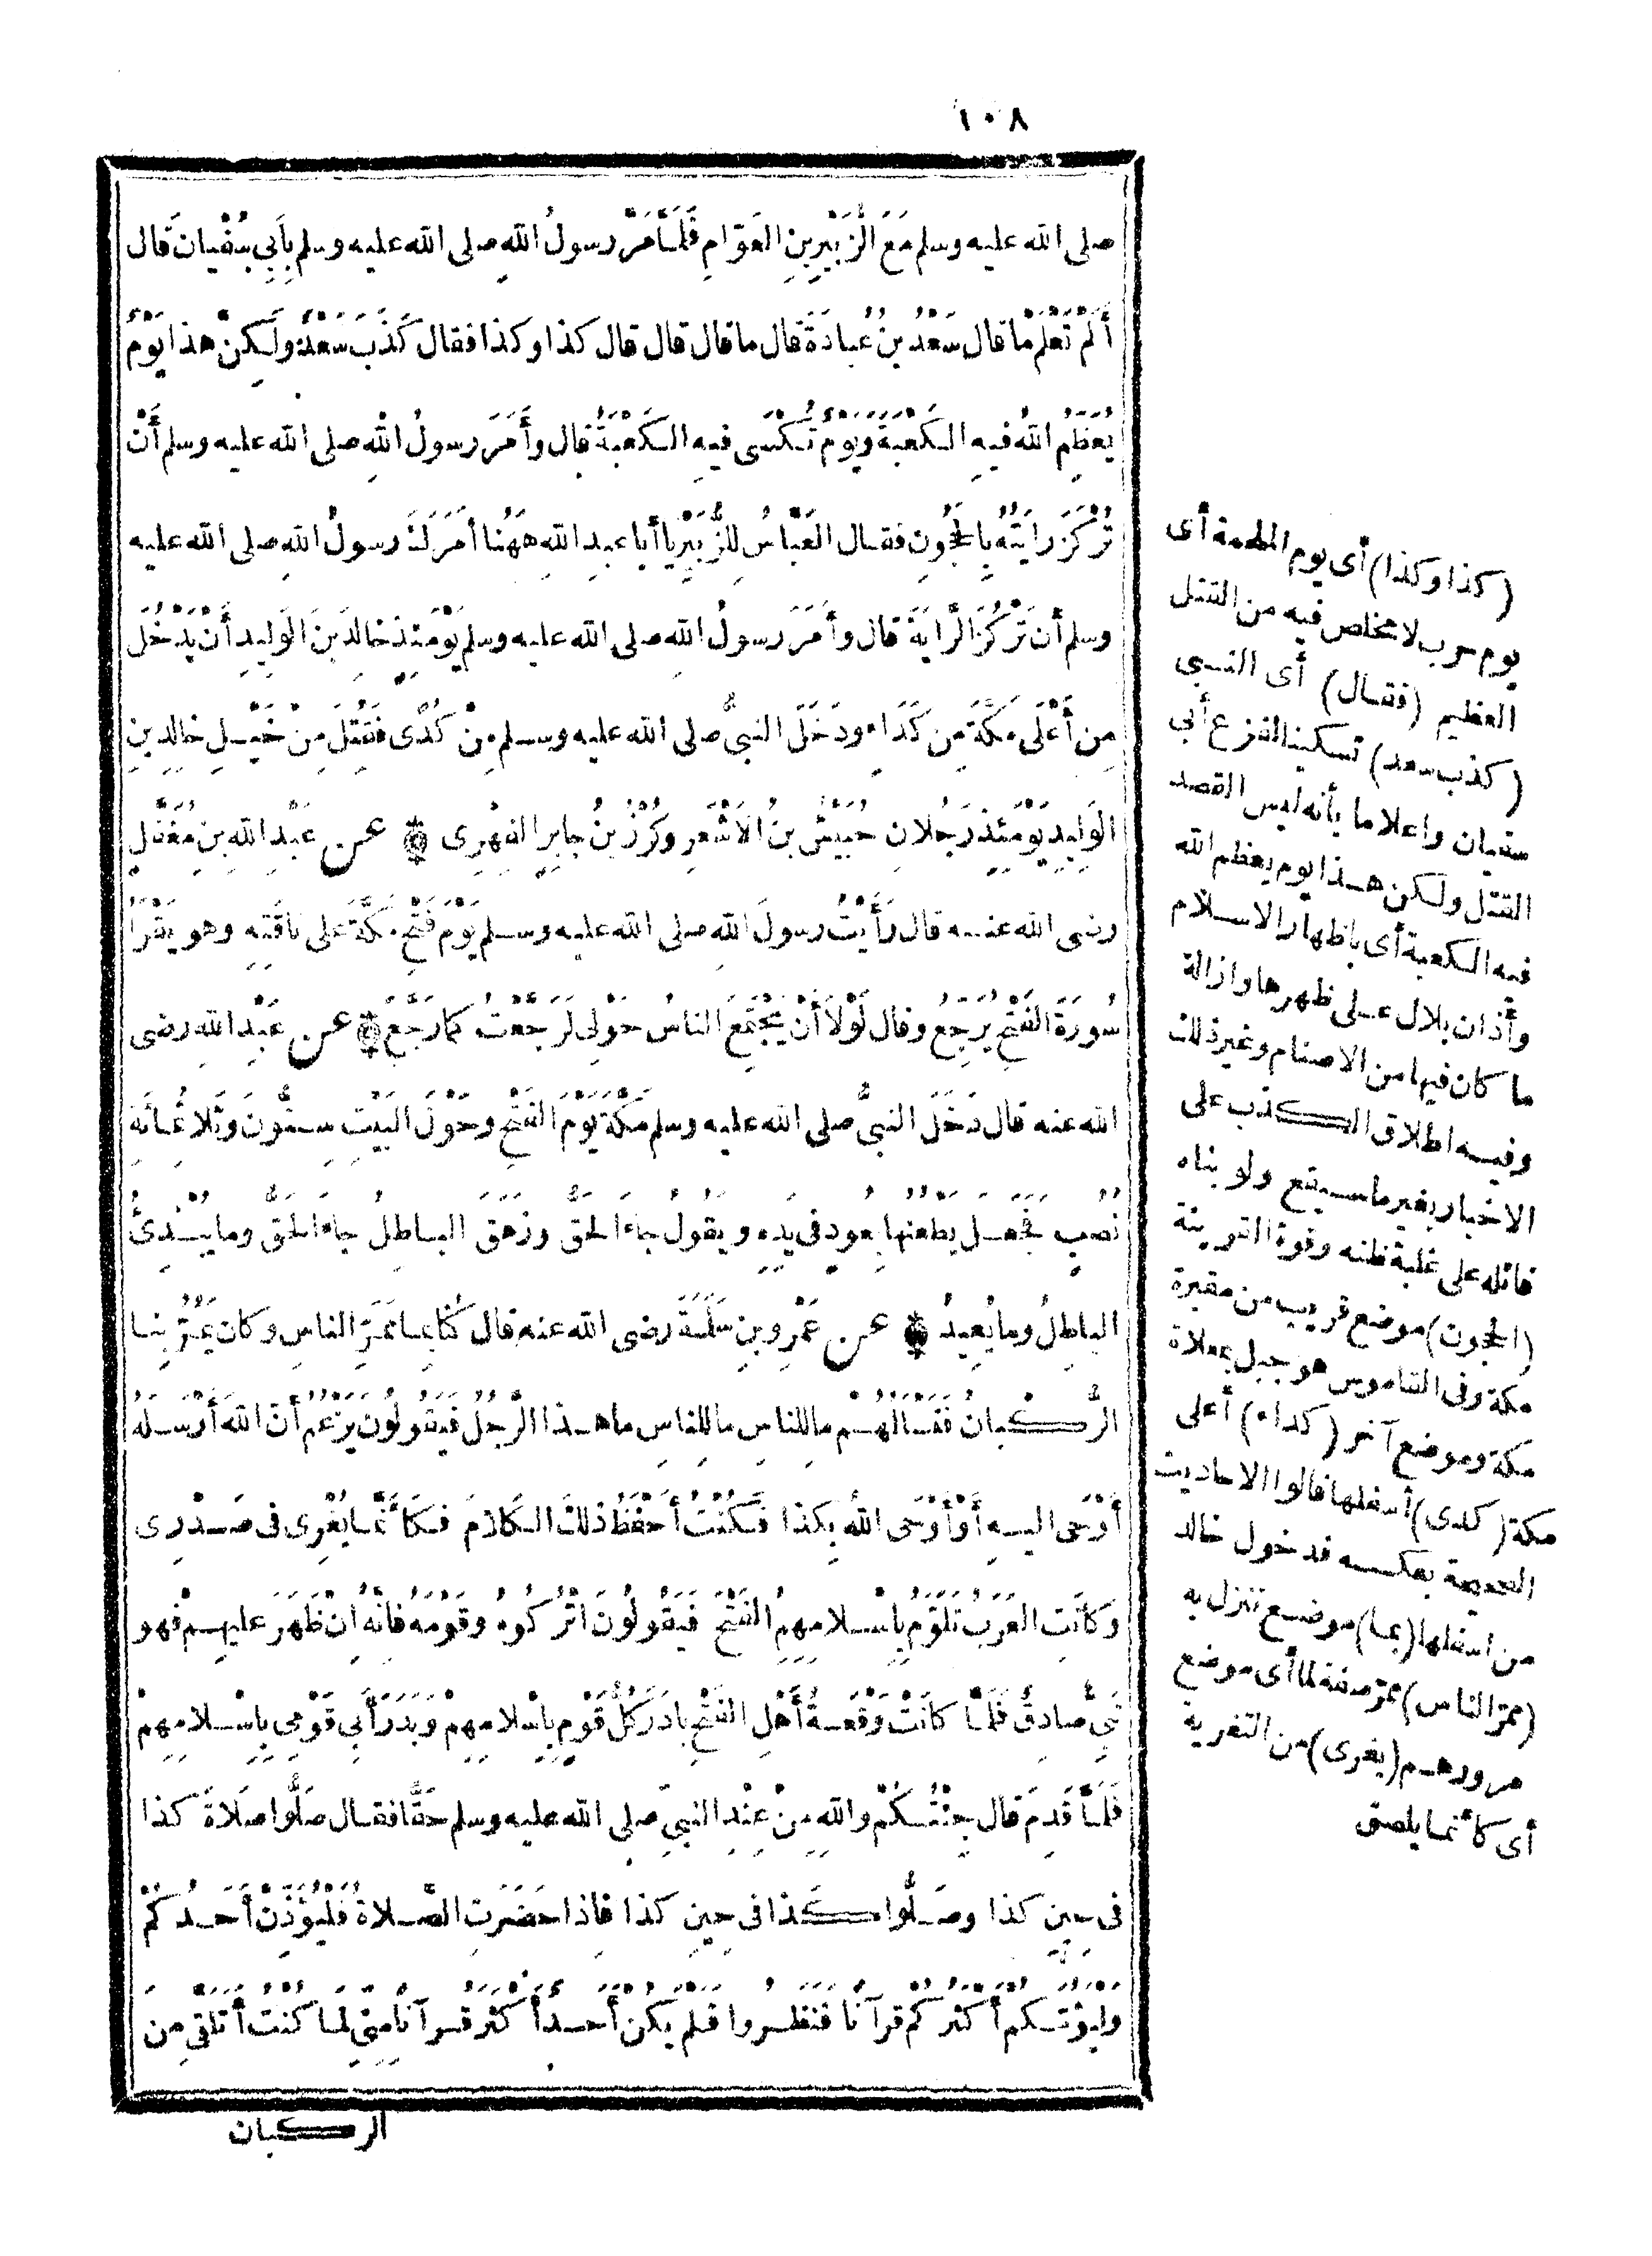 ١٠٨
صلى الله عليه وسلم مَعَ الزُّبَيْرِ بنِ العَوَّامِ فَلَمَّا مَرَّ رسولُ اللهِ صلى الله عليه وسلم بِأَبِي سُفْيانَ قال
أَلَمْ تَعْلَمْ ما قال سَعْدُ بنُ عُبادَةَ قال ما قال قال قال كذا وكذا فقال كَذَبَ سَعْدٌ ولَكِنْ هذا يَوْمٌ
يُعَظِّمُ اللهُ فيهِ الكَعْبَةَ ويَوْمٌ تُكْسَى فيهِ الكَعْبَةُ قال وأَمَرَ رسولُ اللهِ صلى الله عليه وسلم أَنْ
تُرْكَزَ رايَتُهُ بِالحَجُونِ فقال العَبَّاسُ لِلزُّبَيْرِ يا أبا عبدِ اللهِ هَهُنا أَمَرَكَ رسولُ اللهِ صلى الله عليه
وسلم أن تَرْكُزَ الرَّايَةَ قال وأَمَرَ رسولُ اللهِ صلى الله عليه وسلم يَوْمَئِذٍ خالِدَ بنَ الوَلِيدِ أَنْ يَدْخُلَ
مِن أَعْلَى مَكَّةَ مِن كَدَاءٍ ودَخَلَ النبيُّ صلى الله عليه وسلم مِنْ كُدًى فَقُتِلَ مِنْ خَيْلِ خالِدِ بنِ
الوَلِيدِ يَوْمَئِذٍ رَجُلانِ حُبَيْشُ بنُ الأَشْعَرِ وكُرْزُ بنُ جابِرٍ الفِهْرِى ۞ عن عَبْدِ اللهِ بنِ مُغَفَّلٍ
رضى الله عنه قال رَأَيْتُ رسولَ اللهِ صلى الله عليه وسلم يَوْمَ فَتْحِ مَكَّةَ عَلى ناقَتِهِ وهو يَقْرَأُ
سُورَةَ الفَتْحِ يُرَجِّعُ وقال لَوْلَا أَنْ يَجْتَمِعَ الناسُ حَوْلِى لَرَجَّعْتُ كما رَجَّعَ ۞ عن عَبْدِ اللهِ رضى
الله عنه قال دَخَلَ النبيُّ صلى الله عليه وسلم مَكَّةَ يَوْمَ الفَتْحِ وحَوْلَ البَيْتِ سِتُّونَ وثَلاثُمِائَةِ
نُصُبٍ فَجَعَلَ يَطْعُنُها بِعُودٍ فى يَدِهِ ويَقُولُ جاءَ الحَقُّ وزَهَقَ الباطِلُ جاءَ الحَقُّ وما يُبْدِئُ
الباطِلُ وما يُعِيدُ ۞ عن عَمْرِو بنِ سَلَمَةَ رضى الله عنه قال كُنَّا بِما مَمَرَّ الناسِ وكان يَمُرُّ بِنا
الرُّكْبانُ فَنَسْأَلُهُمْ ما للناسِ ما للناسِ ما هذا الرَّجُلُ فَيَقُولُونَ يَزْعُمُ أنّ اللهَ أَرْسَلَهُ
أَوْحَى إليهِ أَوْ أَوْحَى اللهُ بِكذا فَكُنْتُ أَحْفَظُ ذلكَ الكَلامَ فَكَأَنَّما يُغْرِى فى صَدْرِى
وكانَتِ العَرَبُ تَلَوَّمُ بِإسْلامِهِمُ الفَتْحَ فَيَقُولُونَ اتْرُكُوهُ وقَوْمَهُ فانّهُ إنْ ظَهَرَ عليهِمْ فهو
نَبِيٌّ صادِقٌ فَلَمَّا كانَتْ وَقْعَةُ أَهْلِ الفَتْحِ بادَرَ كُلُّ قَوْمٍ بِإِسْلامِهِمْ وبَدَرَ أَبِي قَوْمِى بِإِسْلامِهِمْ
فَلَمَّا قَدِمَ قال جِئْتُكُمْ واللهِ مِنْ عِنْدِ النبيِّ صلى الله عليه وسلم حَقًّا فقال صَلُّوا صَلاةَ كذا
فى حِينِ كذا وصَلُّوا كَذا فى حِينِ كذا فاذا حَضَرَتِ الصَّلاةُ فَلْيُؤَذِّنْ أَحَدُكُمْ
ولْيَؤُمَّكُمْ أَكْثَرُكُمْ قرآنًا فَنَظَرُوا فَلَمْ يَكُنْ أَحَدٌ أَكْثَرَ قرآنًا مِنِّي لِمَا كُنْتُ أَتَلَقَّى مِنَ
الركبان
(كذا وكذا) أى يوم الملحمة أى
يوم حرب لا مخلص فيه من القتل
العظيم (فقال) أى النبي
(كذب سعد) تسكينا لفزع أبى
سفيان واعلاما بأنه ليس القصد
القتل ولكن هذا يوم يعظم الله
فيه الكعبة أى باظهار الاسلام
وأذان بلال على ظهرها وازالة
ما كان فيها من الاصنام وغير ذلك
وفيه اطلاق الكذب على
الاخبار بغير ما سيقع ولو بناه
قائله على غلبة ظنه وقوة القرينة
(الحجون) موضع قريب من مقبرة
مكة وفى القاموس هو جبل بمعلاة
مكة وموضع آخر (كداء) أعلى
مكة (كدى) أسفلها قالوا الاحاديث
الصحيحة بعكسه فدخول خالد
من اسفلها (بما) موضع تنزل به
(ممر الناس) ممرّ صفة لما أى موضع
مرورهم (يغرى) من التغرية
أى كأنما يلصق